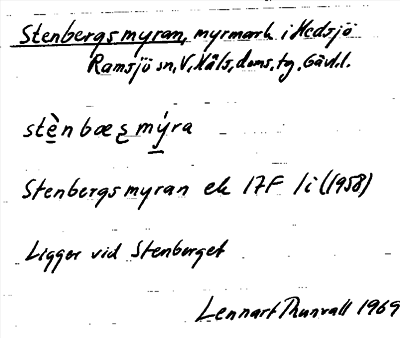 Stenbergsmyran, myrmark i Hedsjö
Ramsjö sn, V. Häls. doms. tg. Gävl. l.
stènbæs̨mýra
Stenbergsmyran ek 17F 1i (1958)
Ligger vid Stenberget
Lennart Thunvall 1969